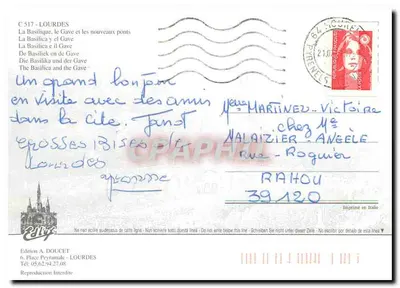 C 517 - LOURDES
La Basilique, le Gave et les nouveaux ponts
La Basilica y el Gave
La Basilica e il Gave
De Basiliek en de Gave
Die Basilika und der Gave
The Basilica and the Gave
un grand bonjour
en visite avec des amis
dans la cité.
GROSSES BISES
Lourdes
Mme MARTINEZ-Victoire
chez Me
MALAIZIER-ANGÈLE
Rue-Roquier
RAHOU
39120
CARTE PRA
Imprimé en Italie
Edition A. DOUCET
6, Place Peyramale - LOURDES
Tél. 05.62.94.27.08
Reproduction Interdite